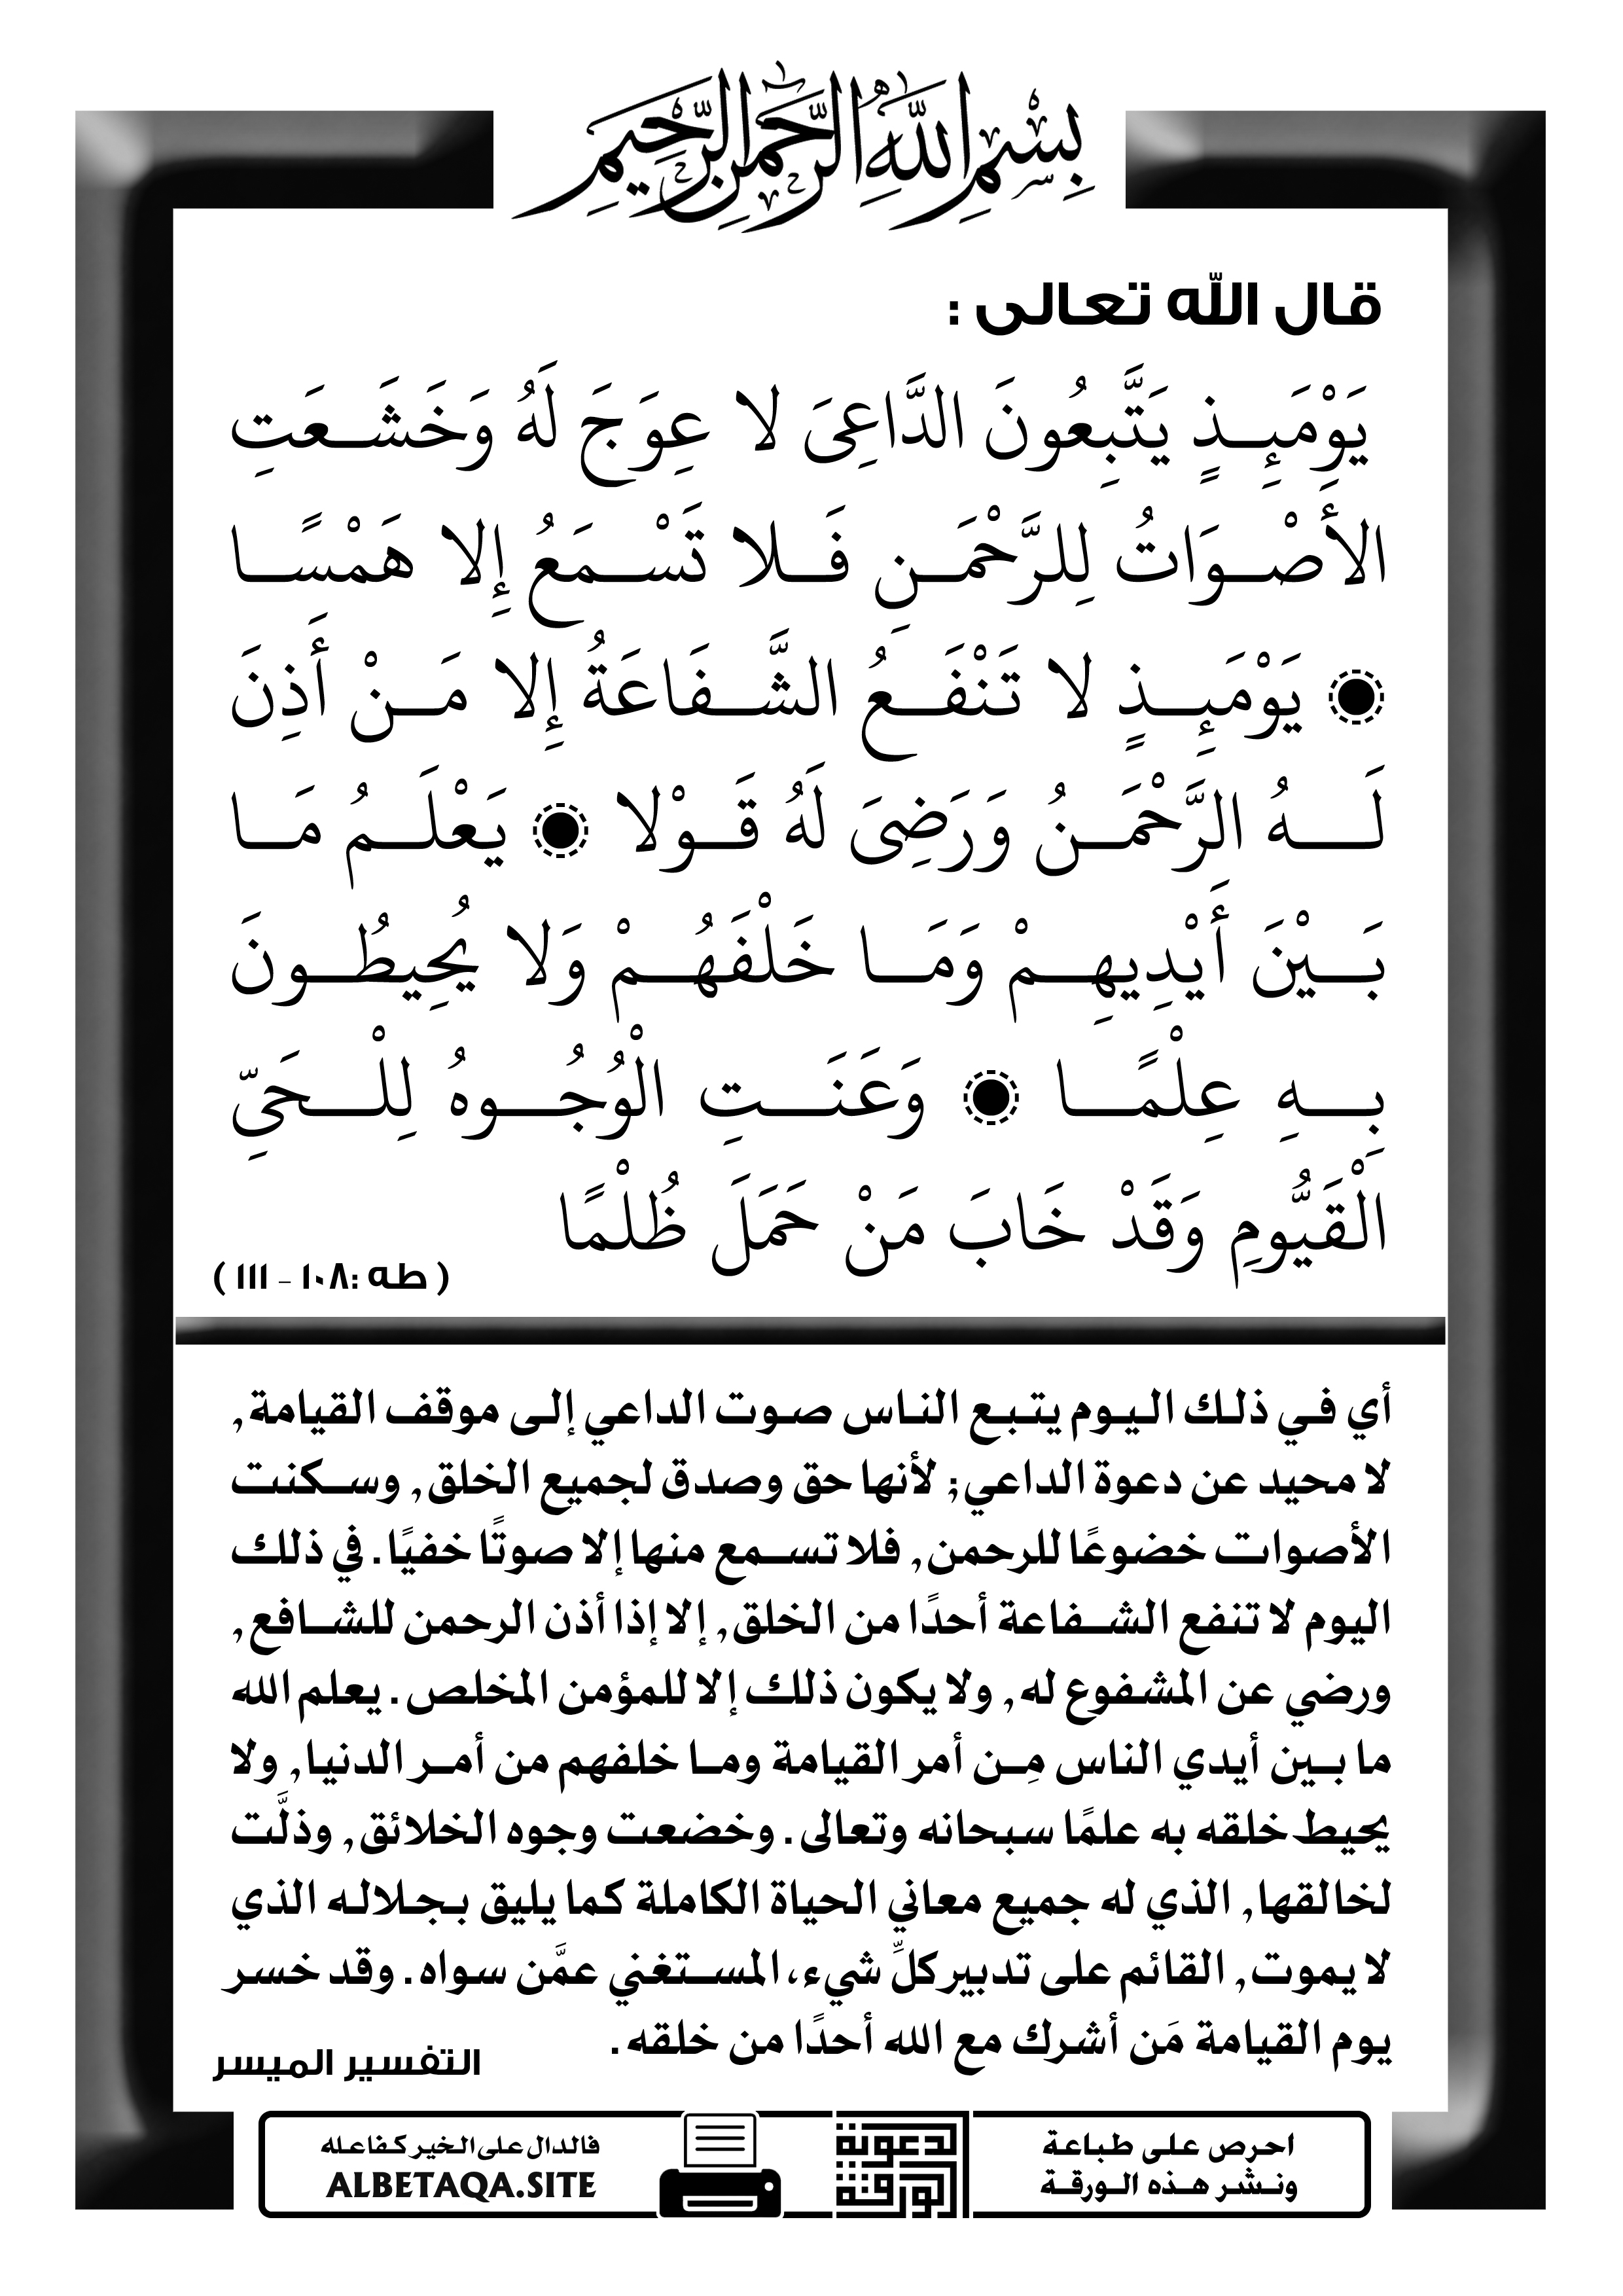 بِسْمِ اللَّهِ الرَّحْمَنِ الرَّحِيمِ
قال الله تعالى :
يَوْمَئِذٍ يَتَّبِعُونَ الدَّاعِىَ لا عِوَجَ لَهُ وَخَشَعَتِ
الأَصْوَاتُ لِلرَّحْمَنِ فَلا تَسْمَعُ إِلا هَمْسًا
يَوْمَئِذٍ لا تَنْفَعُ الشَّفَاعَةُ إِلا مَنْ أَذِنَ
لَهُ الرَّحْمَنُ وَرَضِىَ لَهُ قَوْلا يَعْلَمُ مَا
بَيْنَ أَيْدِيهِمْ وَمَا خَلْفَهُمْ وَلا يُحِيطُونَ
بِهِ عِلْمًا وَعَنَتِ الْوُجُوهُ لِلْحَىِّ
الْقَيُّومِ وَقَدْ خَابَ مَنْ حَمَلَ ظُلْمًا
( طه :١٠٨ - ١١١ )
أي في ذلك اليوم يتبع الناس صوت الداعي إلى موقف القيامة,
لا محيد عن دعوة الداعي; لأنها حق وصدق لجميع الخلق, وسكنت
الأصوات خضوعًا للرحمن, فلا تسمع منها إلا صوتًا خفيًا. في ذلك
اليوم لا تنفع الشفاعة أحدًا من الخلق, إلا إذا أذن الرحمن للشافع,
ورضي عن المشفوع له, ولا يكون ذلك إلا للمؤمن المخلص. يعلم الله
ما بين أيدي الناس مِن أمر القيامة وما خلفهم من أمر الدنيا, ولا
يحيط خلقه به علمًا سبحانه وتعالى. وخضعت وجوه الخلائق, وذلَّت
لخالقها, الذي له جميع معاني الحياة الكاملة كما يليق بجلاله الذي
لا يموت, القائم على تدبير كلِّ شيء، المستغني عمَّن سواه. وقد خسر
يوم القيامة مَن أشرك مع الله أحدًا من خلقه.
التفسير الميسر
احرص على طباعة
ونشر هذه الورقة
الورقة
الدعوية
فالدال على الخير كفاعله
ALBETAQA.SITE